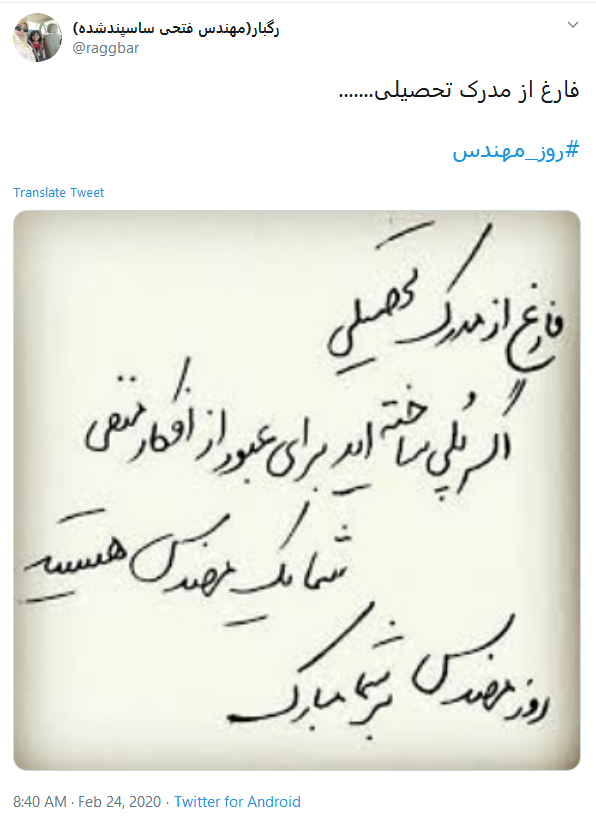 رگبار(مهندس فتحی ساسپندشده)
@raggbar
فارغ از مدرک تحصیلی.......
#روز_مهندس
Translate Tweet
فارغ از مدرک تحصیلی
اگر پُلی ساخته اید برای عبور از افکار منفی
شما یک مهندس هستید
روز مهندس بر شما مبارک
8:40 AM · Feb 24, 2020 · Twitter for Android